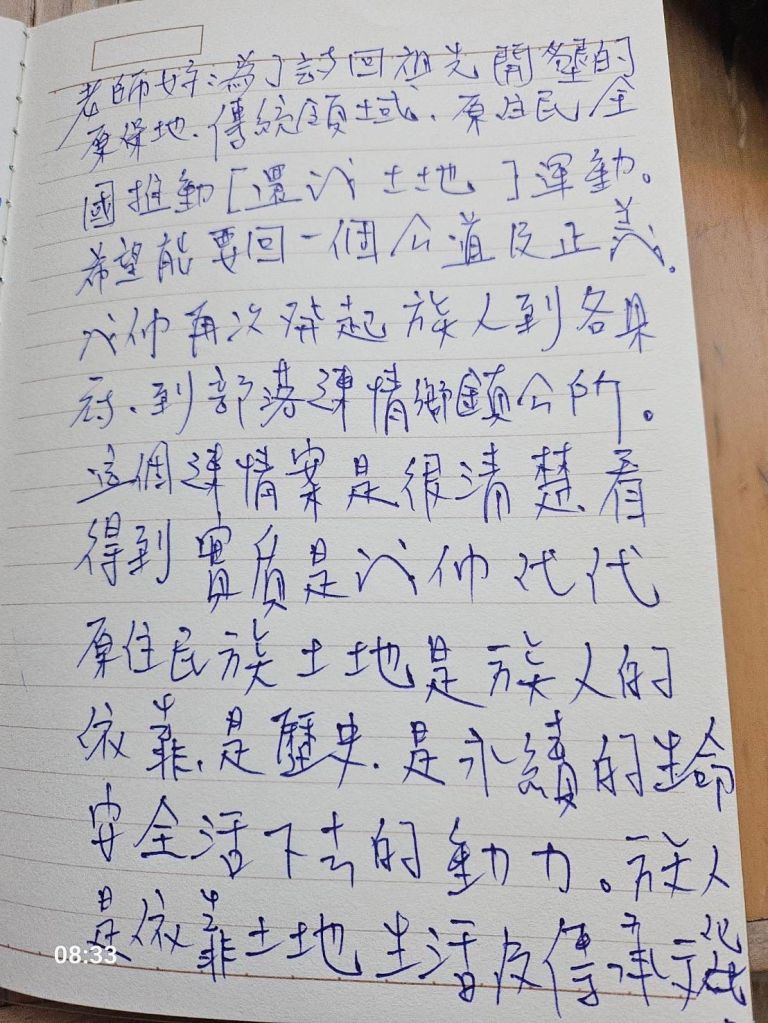 老師好:為了討回祖先開墾的
原保地.傳統領域.原住民全
國推動[還我土地]運動。
希望能要回一個公道及正義.
我們再次發起族人到各縣
府.到部落陳情鄉鎮公所。
這個陳情案是很清楚看
得到實質是我們代代
原住民族土地是族人的
依靠.是歷史.是永續的生命
安全活下去的動力。族人
是依靠土地生活及傳承文化
08:33